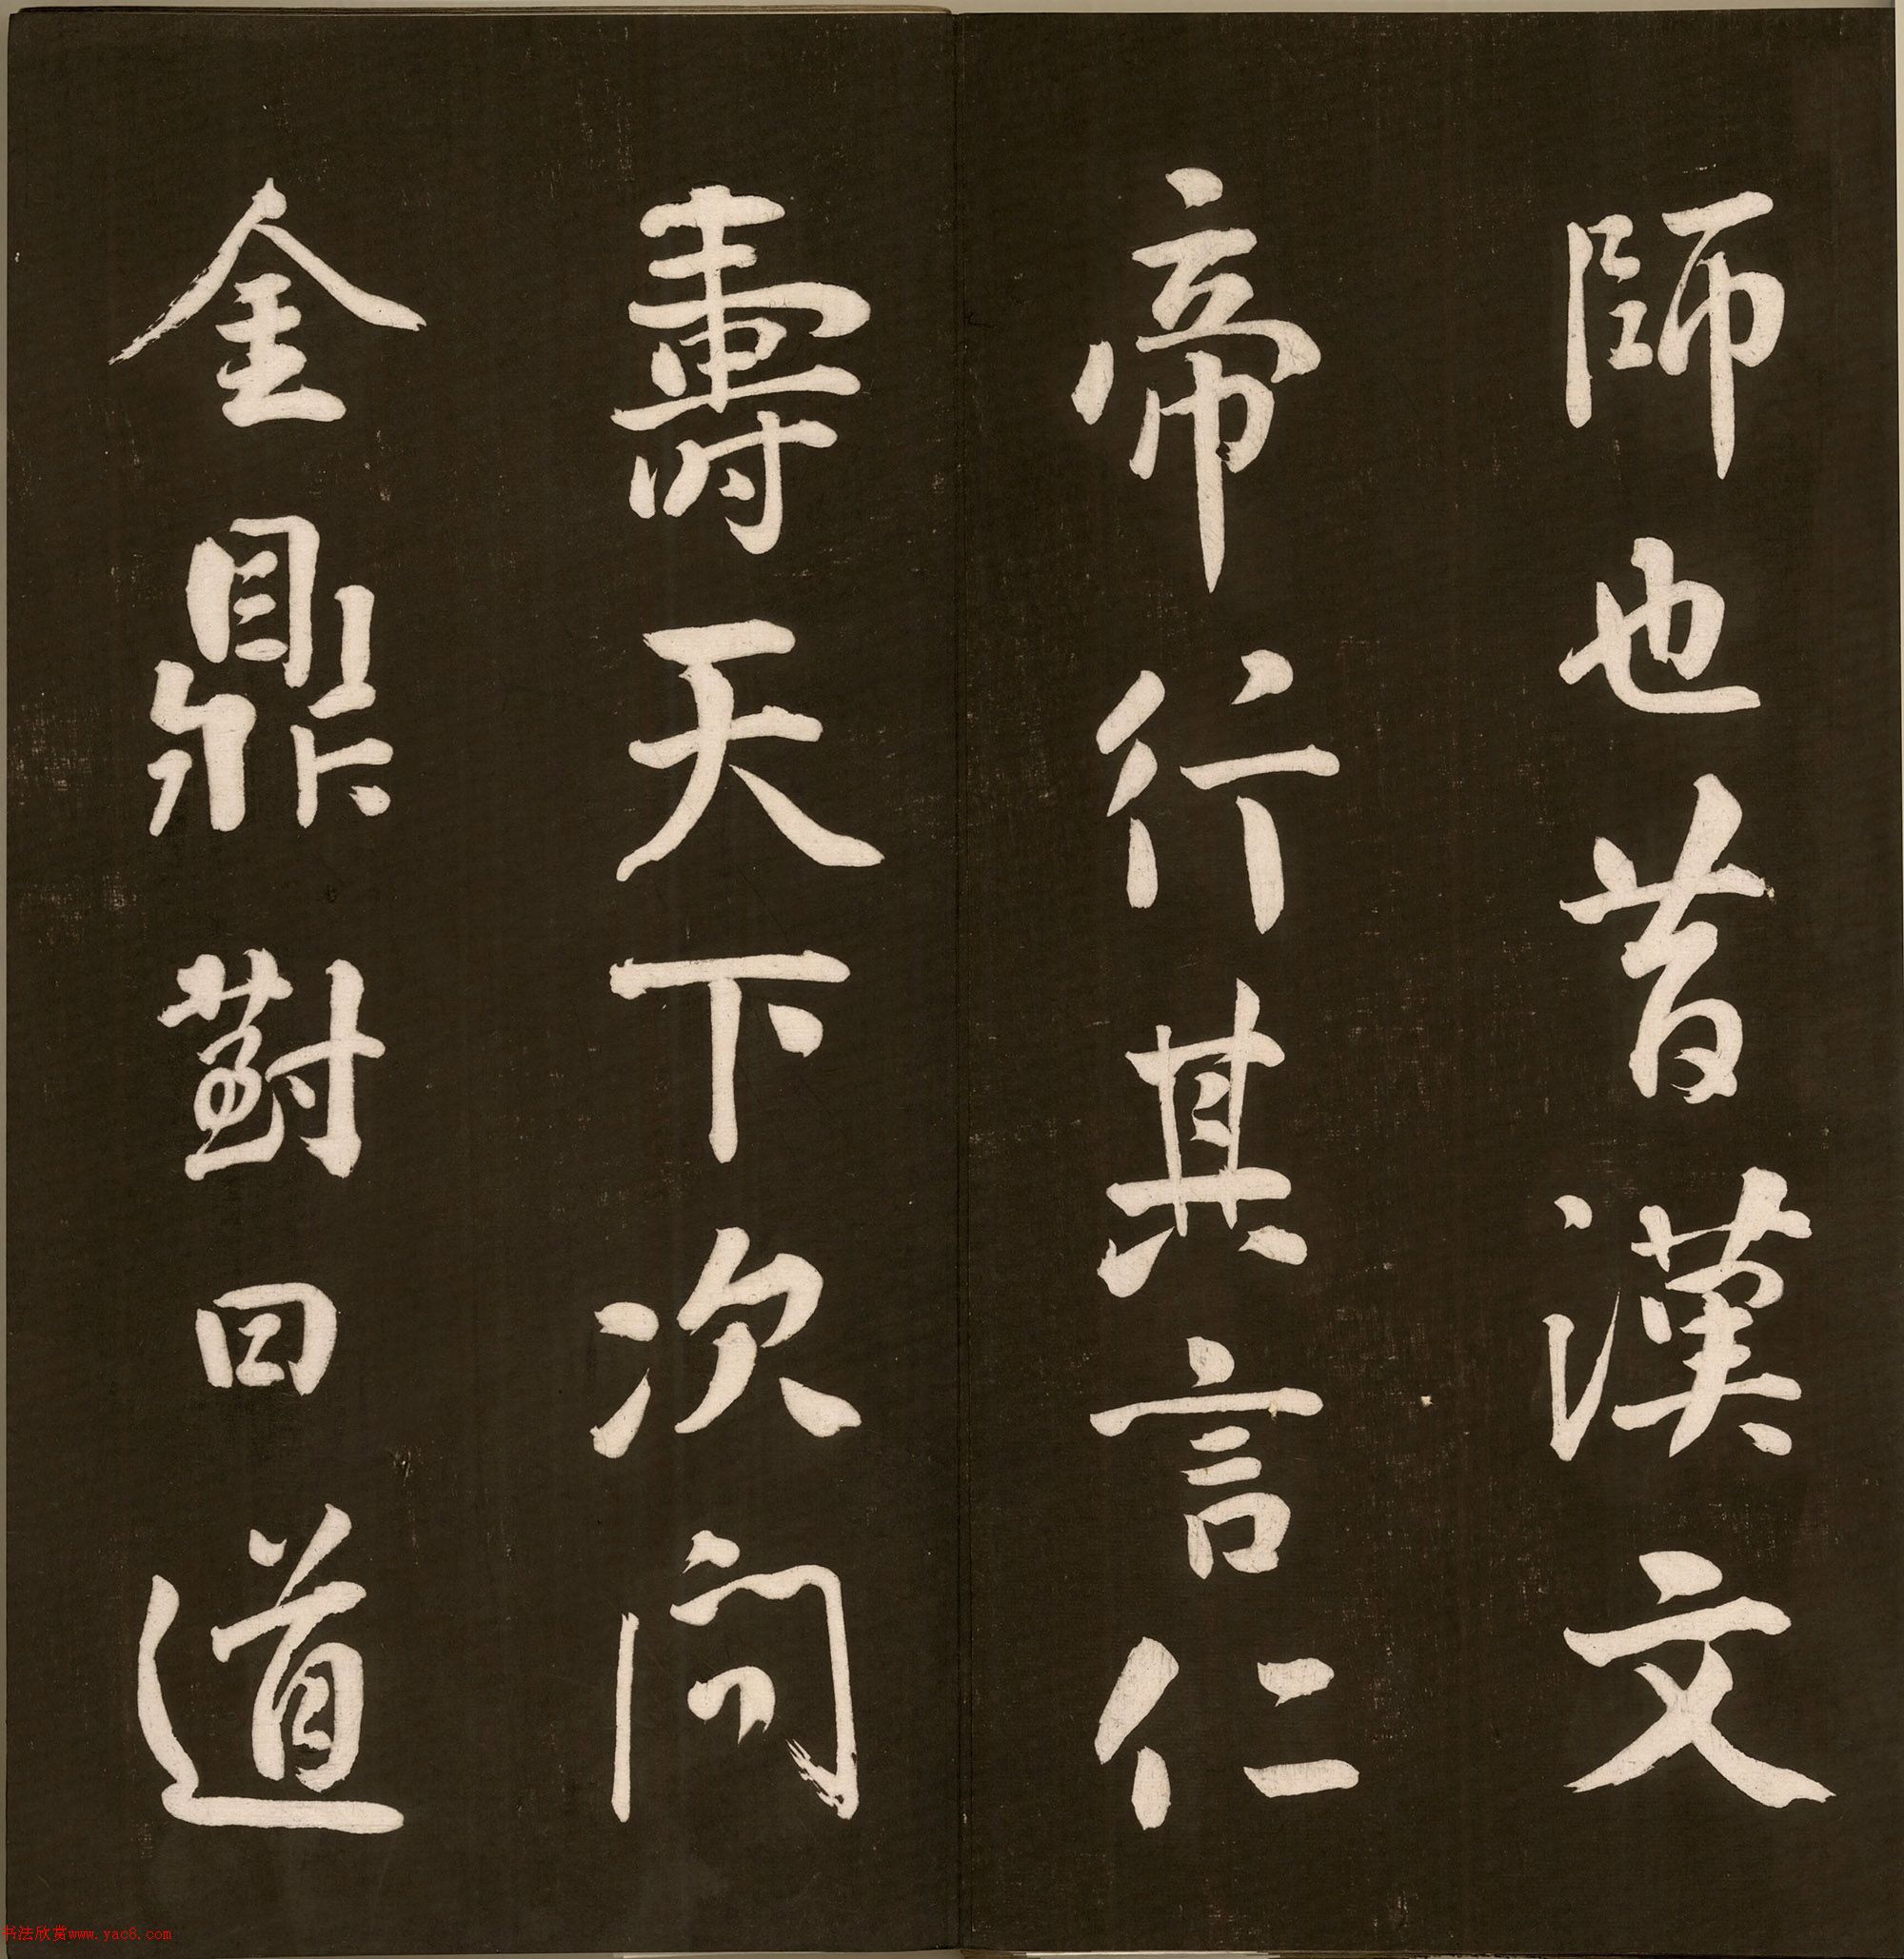 師也昔漢文
帝行其言仁
壽天下次問
金鼎對曰道
书法欣赏www.yac8.com